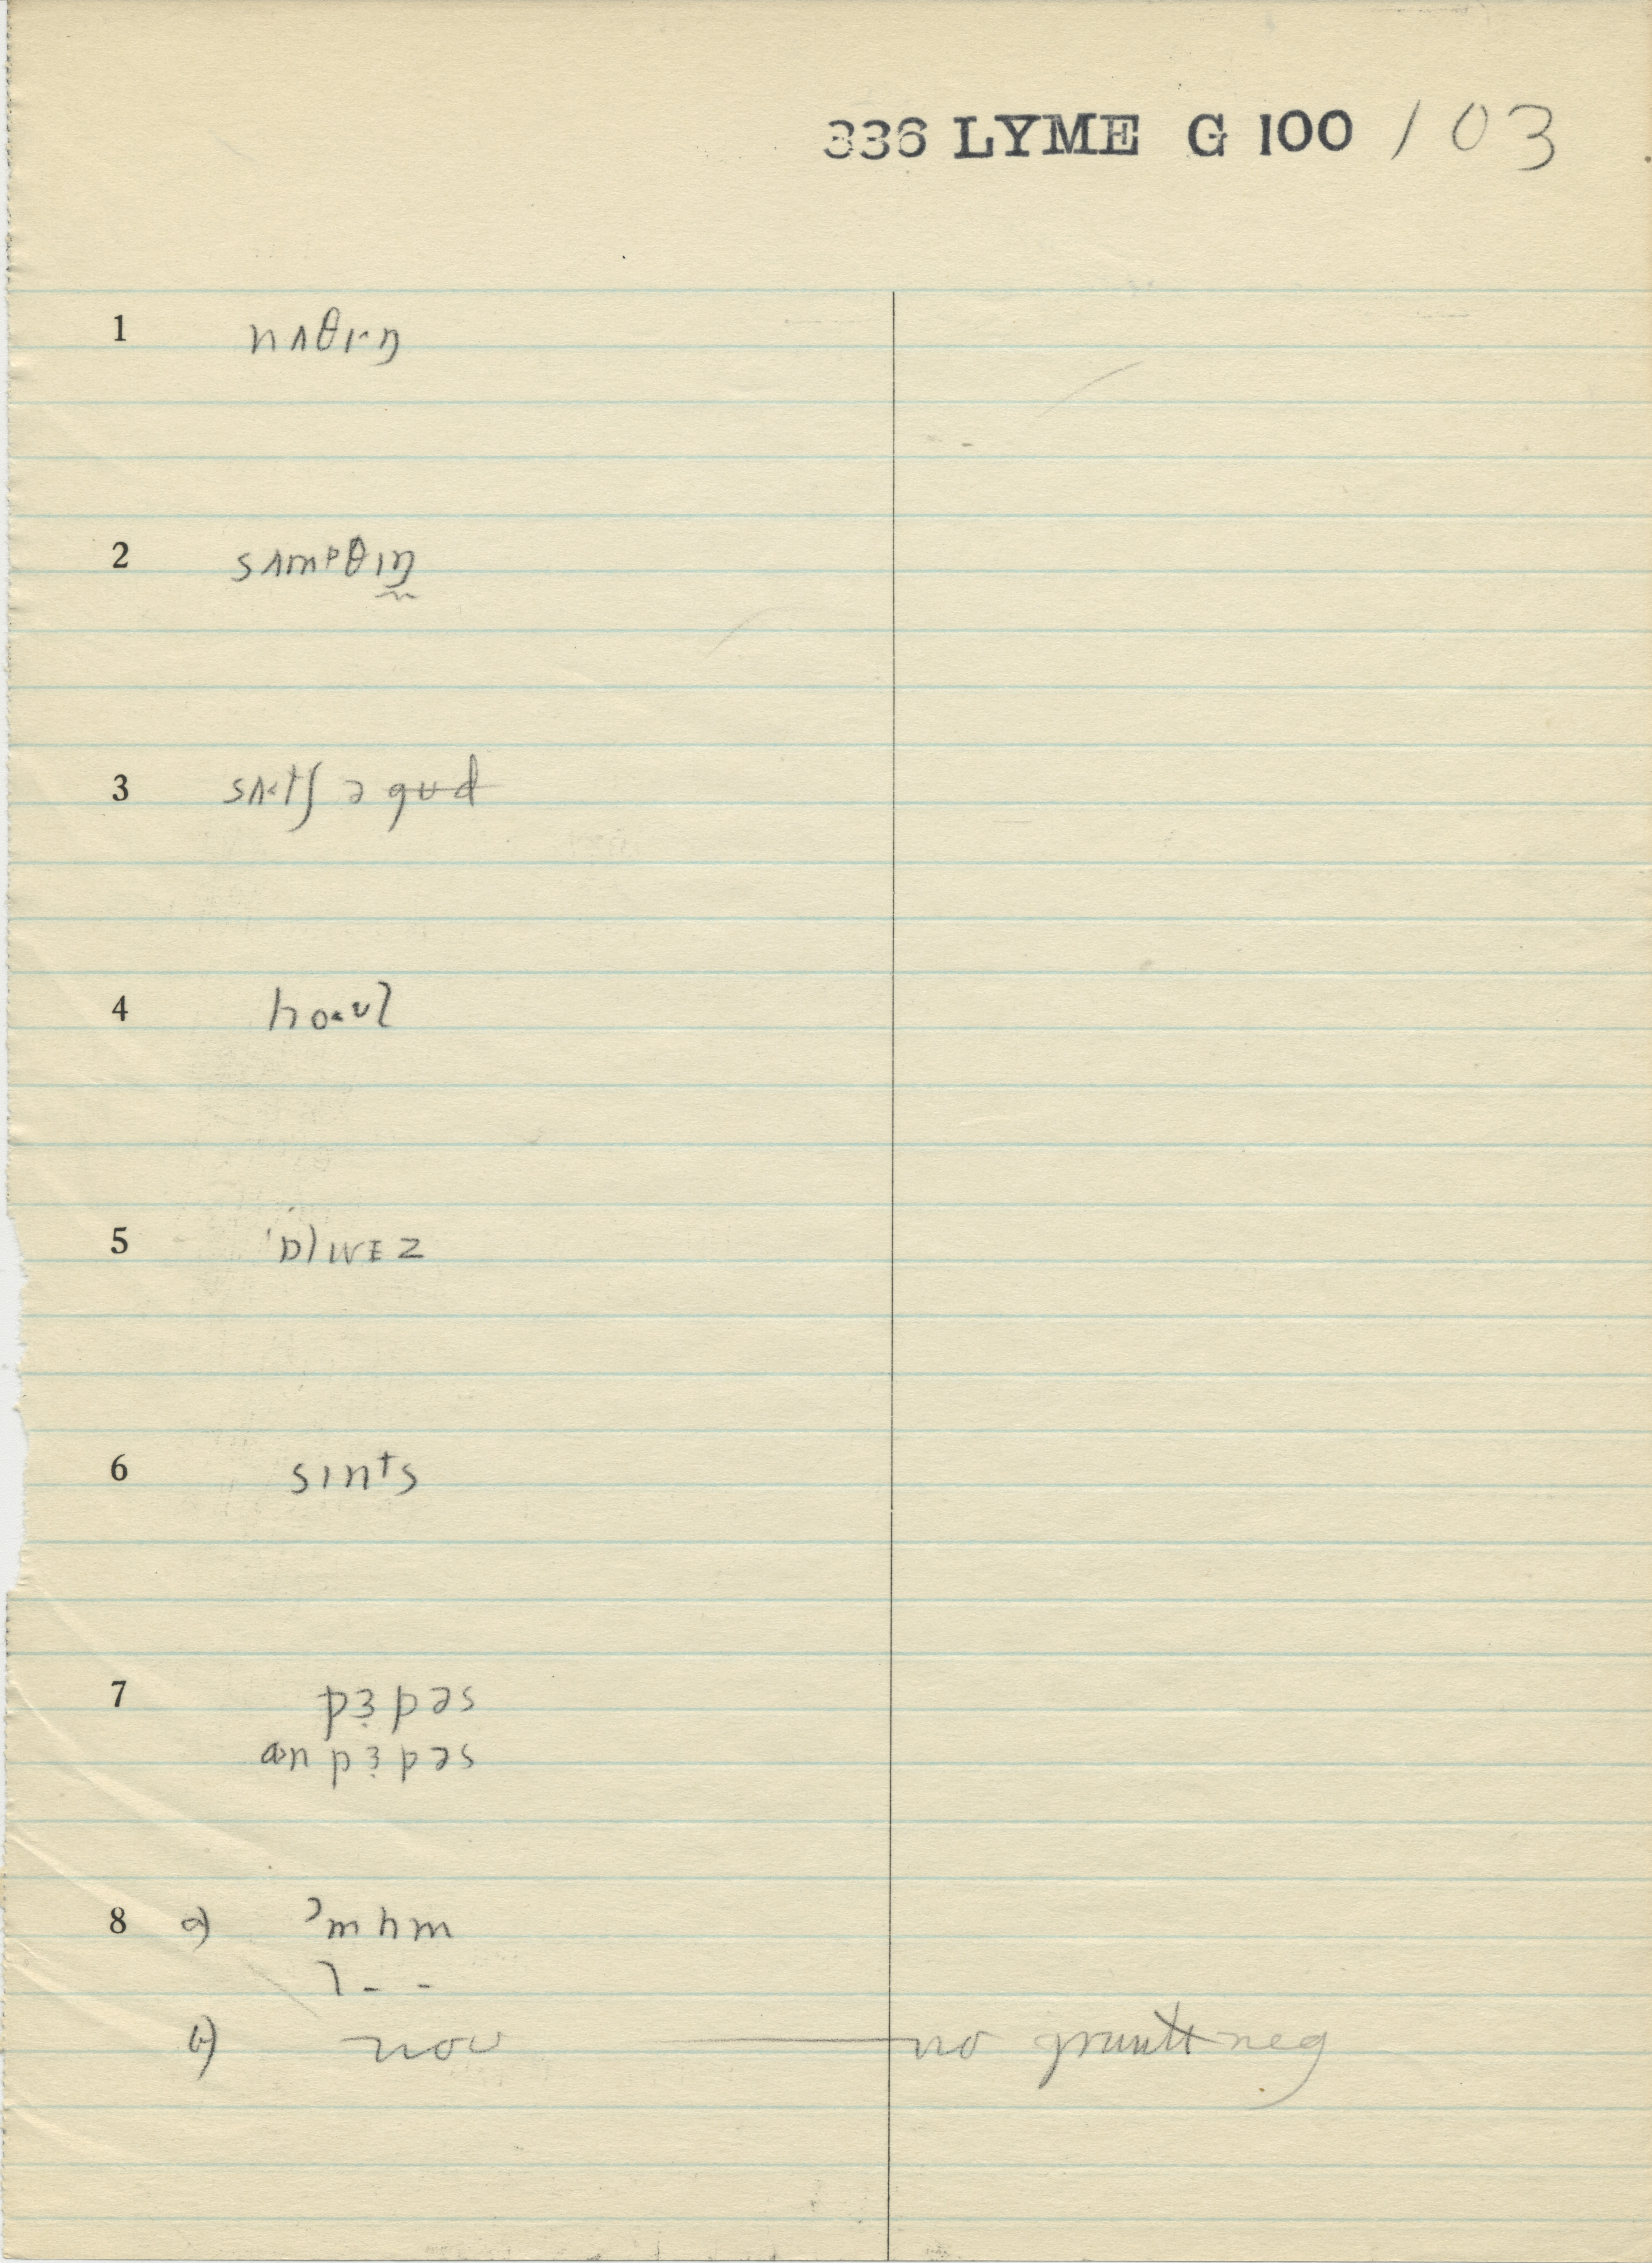 336 LYME G 100 / 03
1 nʌθɪ˔ŋ
2 sʌmᵖθɪŋ
3 sʌ˂tʃ ə gʊd
4 ho˂ʊl
5 'ɒlwɛz
6 sɪnᵗs
7 pɜ̣pəs
ɒn pɜ̣pəs
8 a) ʔmhm
b) noʊ no grunt neg